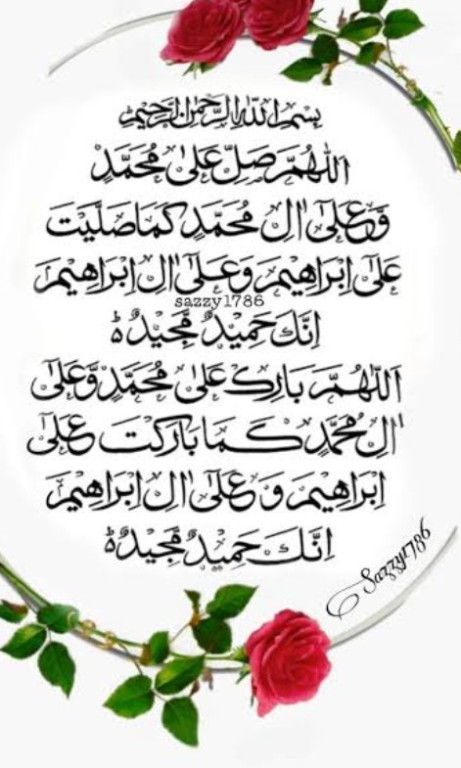 بِسْمِ اللّٰهِ الرَّحْمٰنِ الرَّحِيْمِ
اَللّٰهُمَّ صَلِّ عَلٰى مُحَمَّدٍ
وَّعَلٰٓى اٰلِ مُحَمَّدٍ كَمَا صَلَّيْتَ
عَلٰٓى اِبْرَاهِيْمَ وَعَلٰٓى اٰلِ اِبْرَاهِيْمَ
sazzy1786
اِنَّكَ حَمِيْدٌ مَّجِيْدٌ ؕ
اَللّٰهُمَّ بَارِكْ عَلٰى مُحَمَّدٍ وَّعَلٰٓى
اٰلِ مُحَمَّدٍ كَمَا بَارَكْتَ عَلٰٓى
اِبْرَاهِيْمَ وَ عَلٰٓى اٰلِ اِبْرَاهِيْمَ
اِنَّكَ حَمِيْدٌ مَّجِيْدٌ ؕ
Sazzy1786